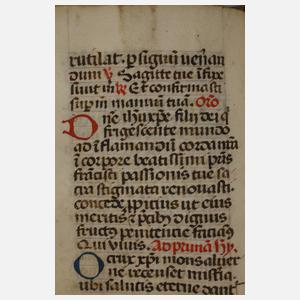 rutilat. p signum venean
dum ℣ Sagitte tue infixe
sunt m ℟ Et confirmasti
sup me manum tuā. Oro
Dne ihu xpe filij dei q
frigescente mundo
ad inflamandum corda nra
i corpore beatissimi pris
francisci passionis tue sa
cra stigmata renovasti
concede ppitius ut eius
meritis & pcib dignius
fructus penitentie faciās
Qui vivis. Ad primam Hy.
O crux xpi mons aluer
ne recenset misteria
ubi salutis eterne dant